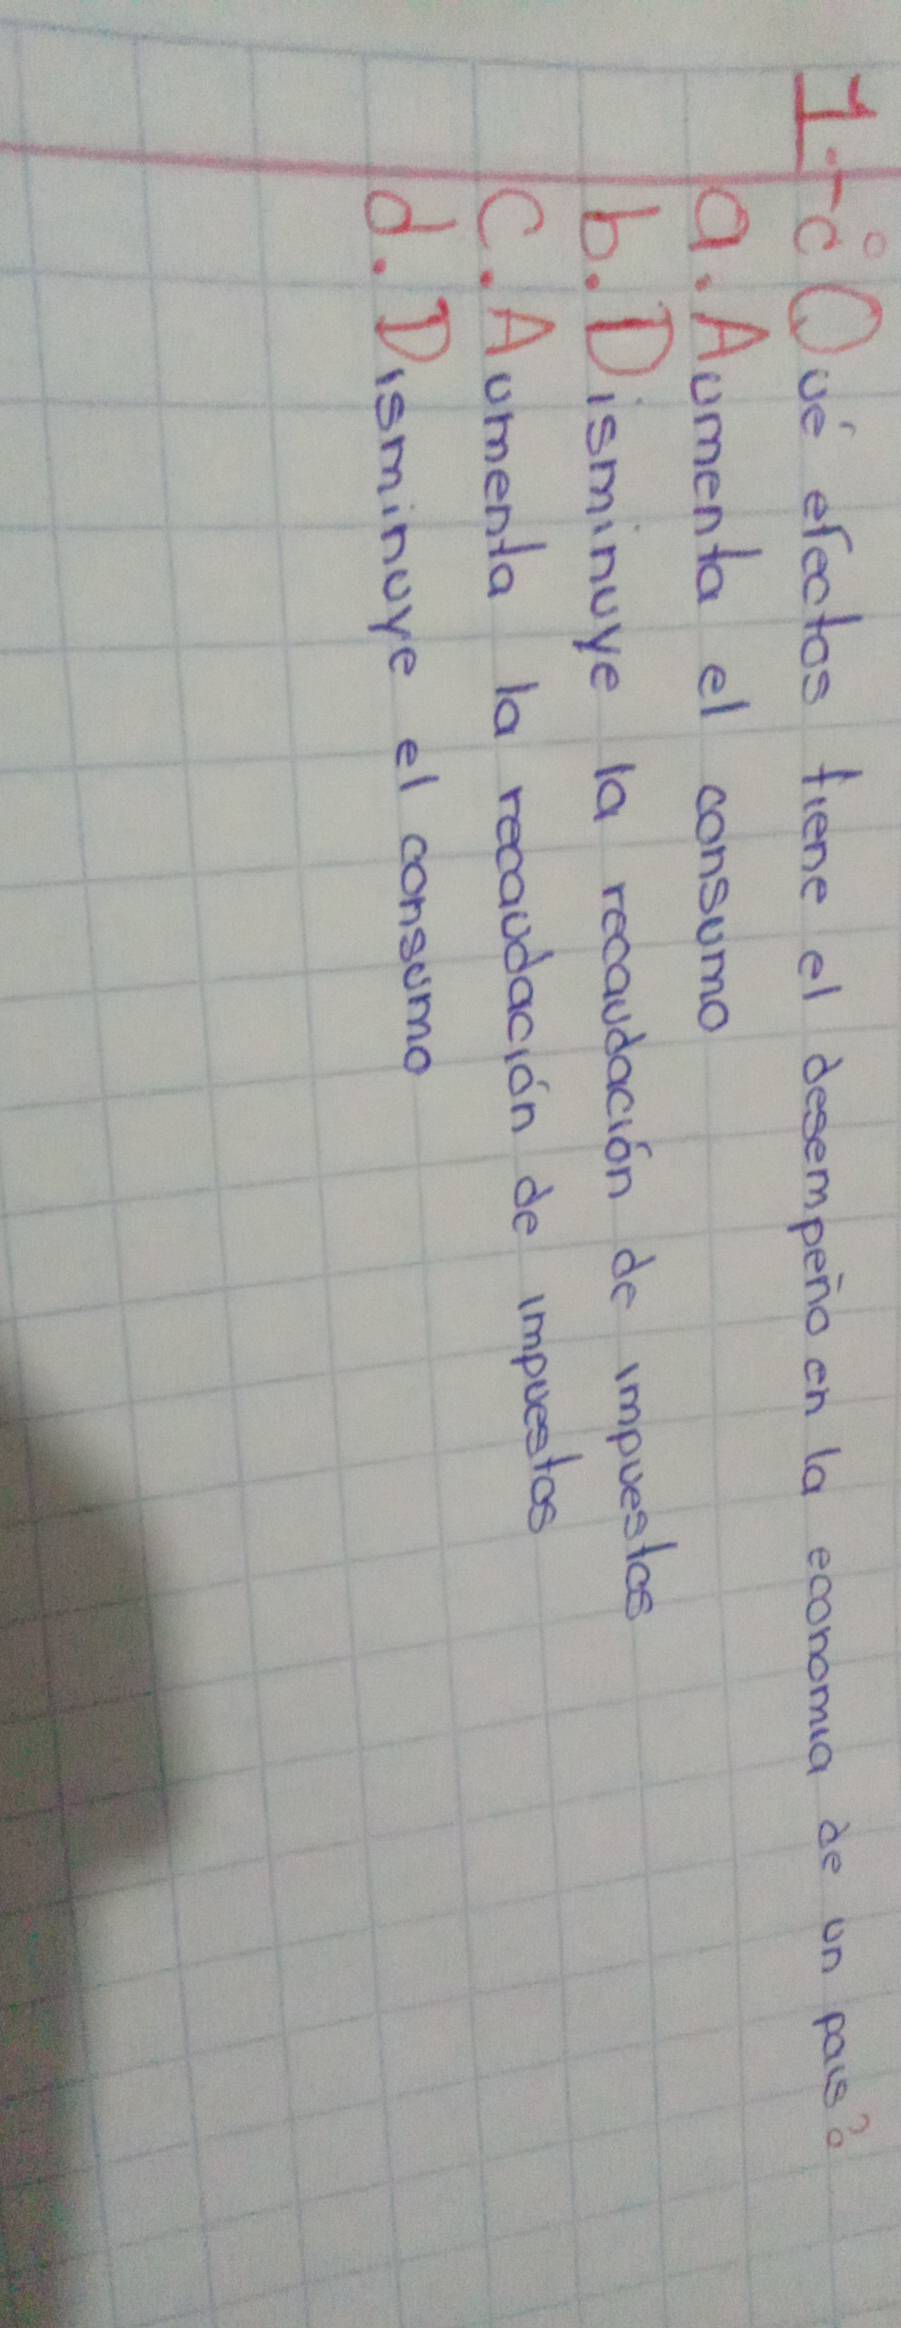 1-¿Qué efectos tiene el desempeño en la economia de un pais?
a. Aumenta el consumo
b. Disminuye la recaudación de impuestos
c. Aumenta la recaudación de impuestos
d. Disminuye el consumo